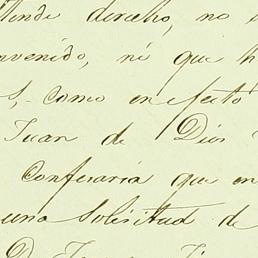 tiende derecho, no
nvenido, ni que h
s, como en efecto
Juan de Dios
Confesaria que en
una Solisitud de